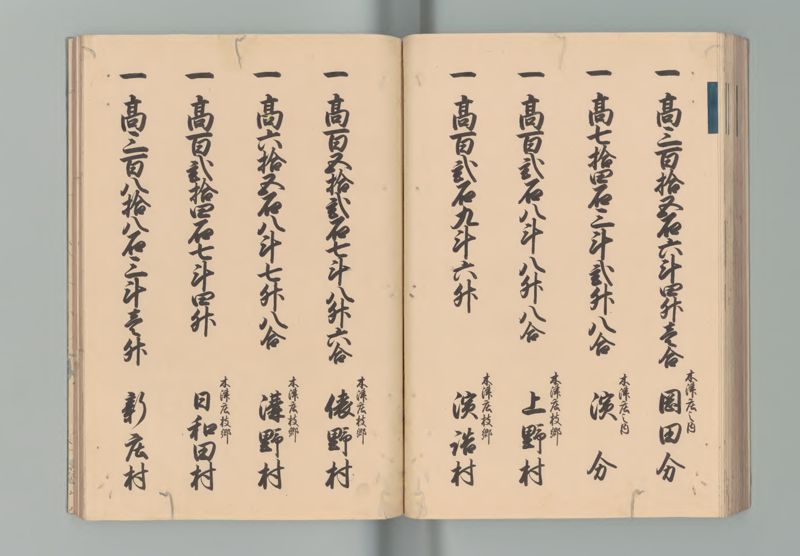 一高三百拾五石六斗四升壱合
本浄庄之内
岡田分
一高七拾四石三斗弐升八合
本浄庄之内
濱分
一高百弐石八斗八升八合
本浄庄枝郷
上野村
一高百弐石九斗六升
本浄庄枝郷
濱詰村
一高百五拾弐石七斗八升六合
本浄庄枝郷
俵野村
一高六拾五石八斗七升八合
本浄庄枝郷
溝野村
一高百弐拾四石七斗四升
本浄庄枝郷
日和田村
一高三百八拾八石三斗壱升
新庄村